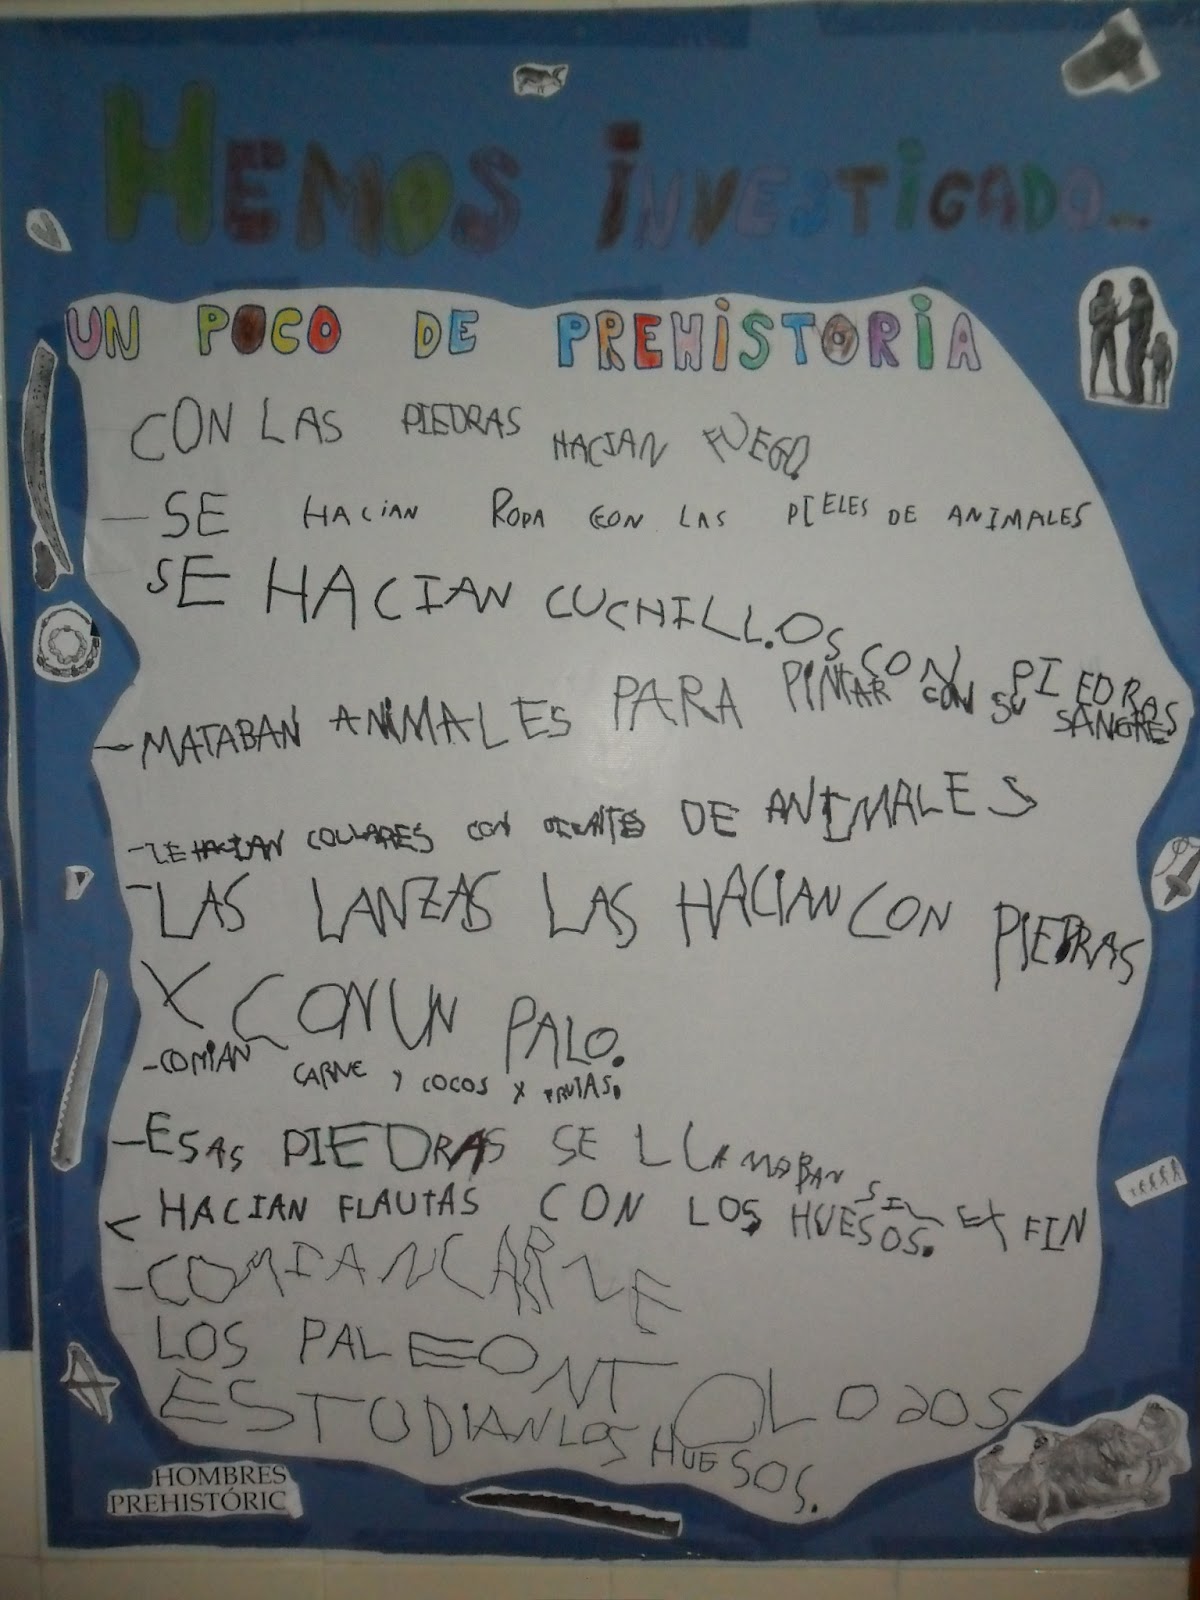 HEMOS iNVESTiGADO...
UN POCO DE PREHiSTORiA
CON LAS PIEDRAS HACIAN FUEGO.
- SE HACiAN ROPA CON LAS PIELES DE ANIMALES
SE HACIAN CUCHILLOS CON PIEDRAS
- MATABAN ANIMALES PARA PINTAR CON SU SANGRE
- HACIAN COLLARES CON DE ANIMALES
- LAS LANZAS LAS HACIAN CON PIEDRAS
Y CON UN PALO.
- COMIAN CARNE Y COCOS Y FRUTAS.
- ESAS PIEDRAS SE LLAMABAN SILEX FIN
- HACIAN FLAUTAS CON LOS HUESOS.
- COMIAN CARNE
LOS PALEONTOLOJOS
ESTUDIAN LOS HUESOS.
HOMBRES
PREHISTÓRIC